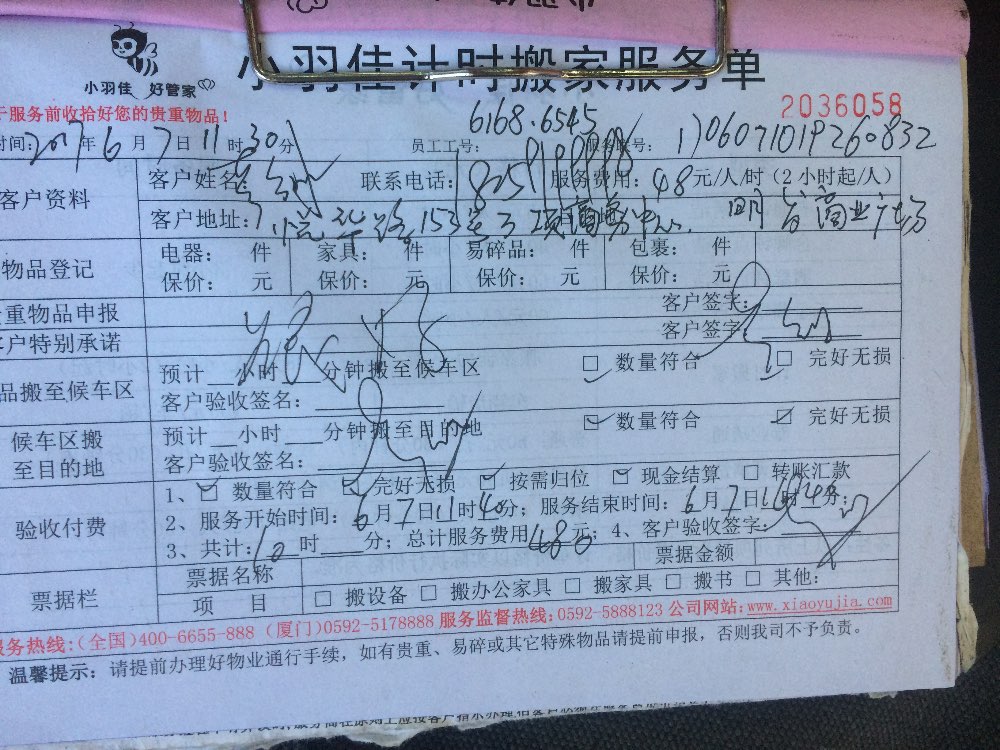 小羽佳计时搬家服务单
小羽佳 好管家
于服务前收拾好您的贵重物品!
2036058
6168.6545
时间:2017年6月7日11时30分 员工工号: 服务联号: 1)06071019260832
客户资料 客户姓名 联系电话: 服务费用:48元/人/时(2小时起/人)
客户地址: 悦华路153号 商业广场
物品登记 电器: 件 家具: 件 易碎品: 件 包裹: 件
保价: 元 保价: 元 保价: 元 保价: 元
重物品申报 客户签字:
客户特别承诺 客户签字
品搬至候车区 预计__小时___分钟搬至候车区 □ 数量符合 □ 完好无损
客户验收签名:
候车区搬至目的地 预计__小时___分钟搬至目的地 数量符合 完好无损
客户验收签名:
验收付费 1、数量符合 完好无损 按需归位 现金结算 □ 转账汇款
2、服务开始时间:6月7日11时40分; 服务结束时间:6月7日16时40分;
3、共计:10时____分; 总计服务费用480元; 4、客户验收签字:
票据栏 票据名称 票据金额
项 目 □ 搬设备 □ 搬办公家具 □ 搬家具 □ 搬书 □ 其他:
服务热线:(全国)400-6655-888 (厦门)0592-5178888 服务监督热线:0592-5888123 公司网站:www.xiaoyujia.com
温馨提示: 请提前办理好物业通行手续, 如有贵重、易碎或其它特殊物品请提前申报, 否则我司不予负责。